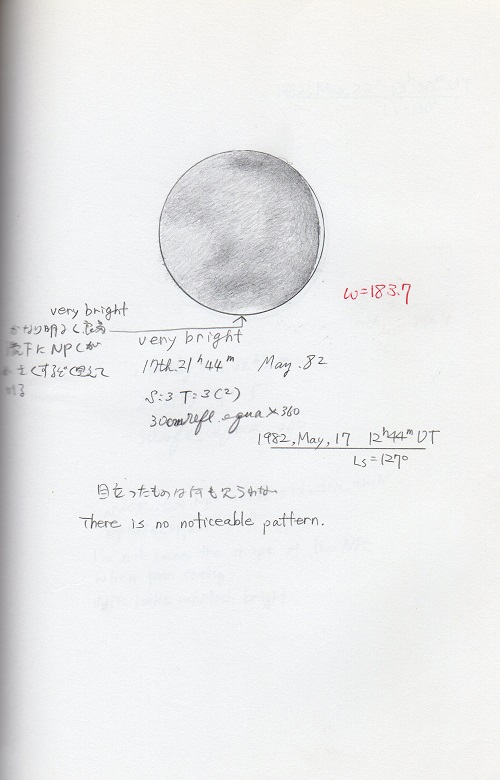 very bright
かなり明るく
NPCが
very bright
17th. 21h 44m May. 82
S:3 T:3(2)
30cm refl. equa × 360
ω=183.7
1982, May, 17 12h44m UT
Ls=127°
目立ったものは何も見られない
There is no noticeable pattern.